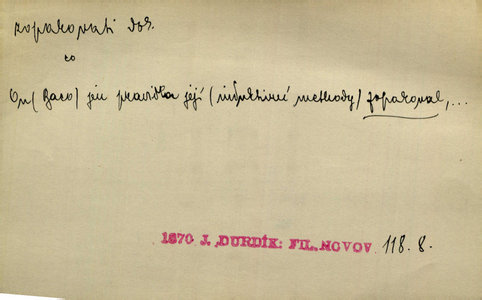 zopakovati dok.
co
On (Baco) jen pravidla její (induktivné methody) zopakoval, ...
1870 J. DURDÍK: FIL. NOVOV 118. 8.